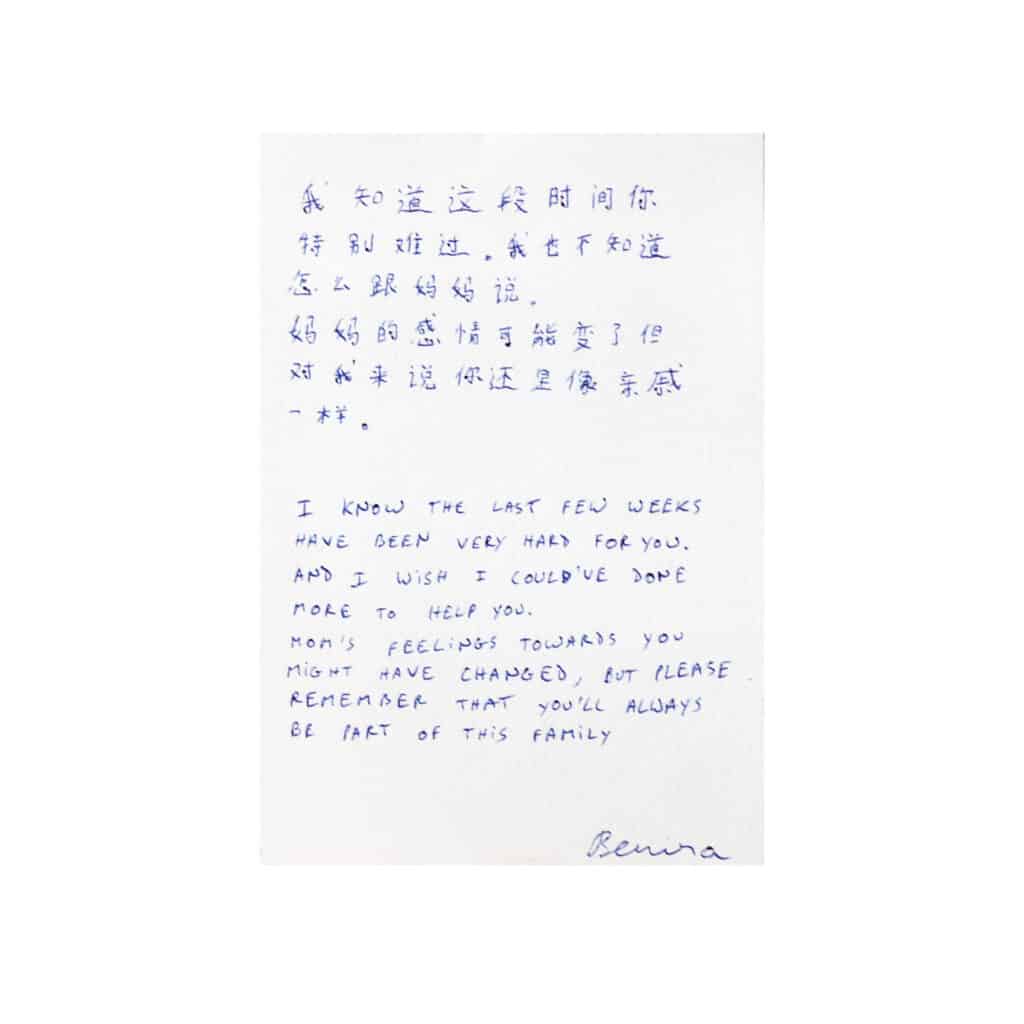 我知道这段时间你
特别难过。我也不知道
怎么跟妈妈说。
妈妈的感情可能变了但
对我来说你还是像亲戚
一样。
I KNOW THE LAST FEW WEEKS
HAVE BEEN VERY HARD FOR YOU.
AND I WISH I COULD'VE DONE
MORE TO HELP YOU.
MOM'S FEELINGS TOWARDS YOU
MIGHT HAVE CHANGED, BUT PLEASE
REMEMBER THAT YOU'LL ALWAYS
BE PART OF THIS FAMILY